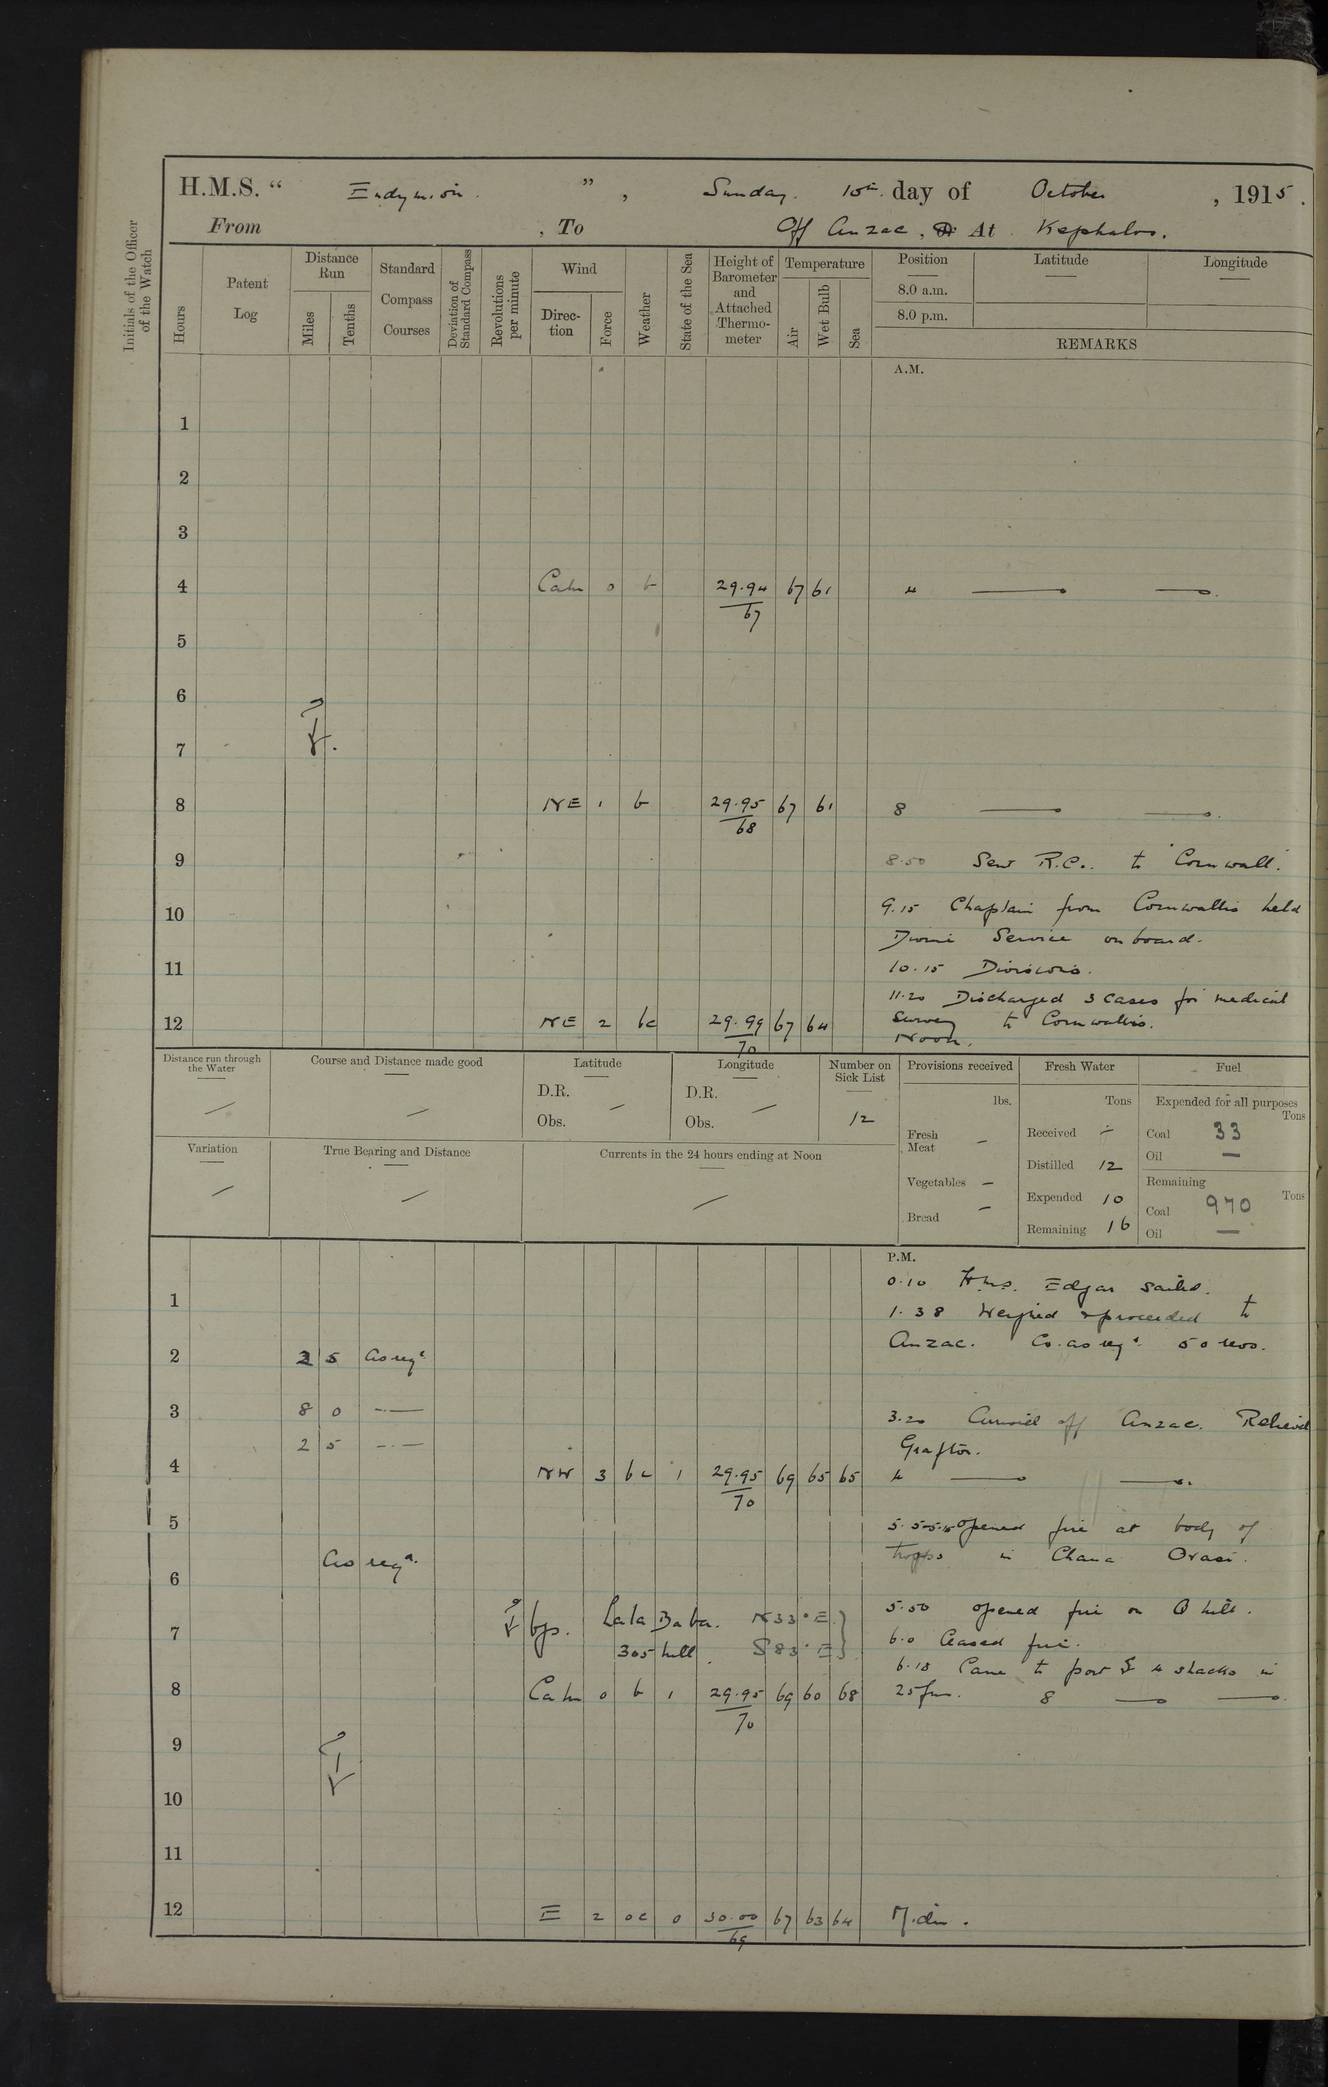 H.M.S. “ Endymion. ” , Sunday. 10th. day of October , 1915.
From , To Off Anzac, At Kephalos.
Initials of the Officer of the Watch
Hours
Patent Log
Distance Run
Miles
Tenths
Standard Compass Courses
Deviation of Standard Compass
Revolutions per minute
Wind
Direction
Force
Weather
State of the Sea
Height of Barometer and Attached Thermometer
Temperature
Air
Wet Bulb
Sea
Position
8.0 a.m.
8.0 p.m.
Latitude
Longitude
REMARKS
A.M.
1
2
3
4 Calm 0 b 29.94/67 67 61 4 —— ——.
5
6
7
8 NE 1 b 29.95/68 67 61 8 —— ——.
9 8.50 Sent R.C.s. to Cornwall.
10 9.15 Chaplain from Cornwallis held
Divine Service on board.
11 10.15 Divisions.
11.20 Discharged 3 cases for medical
12 NE 2 bc 29.99/70 67 64 survey to Cornwallis.
Noon.
Distance run through the Water
/
Course and Distance made good
/
Latitude
D.R.
Obs. /
Longitude
D.R.
Obs. /
Number on Sick List
12
Variation
/
True Bearing and Distance
/
Currents in the 24 hours ending at Noon
/
Provisions received
lbs.
Fresh Meat –
Vegetables –
Bread –
Fresh Water
Tons
Received ÷
Distilled 12
Expended 10
Remaining 16
Fuel
Expended for all purposes
Tons
Coal 33
Oil —
Remaining
Tons
Coal 970
Oil —
P.M.
0.10 H.M.S. Edgar sailed.
1 1.38 Weighed & proceeded to
2 2 5 As reqd Anzac. Co. as reqd. 50 revs.
3 8 0 -.— 3.20 Arrived off Anzac. Relieved
2 5 -.— Grafton.
4 NW 3 bc 1 29.95/70 69 65 65 4 —— ——.
5 5.5-5.15 Opened fire at body of
As reqd. troops in Chana Ovasi.
6
5.50 opened fire on Q hill.
7 bgs. Lala Baba. N33°E }
305 hill. S83°E } 6.0 Ceased fire.
6.18 Came to port 4 shacks in
8 Calm 0 b 1 29.95/70 69 60 68 25 fms. 8 —— ——.
9
10
11
12 E 2 oc 0 30.00/69 67 63 64 Midn.